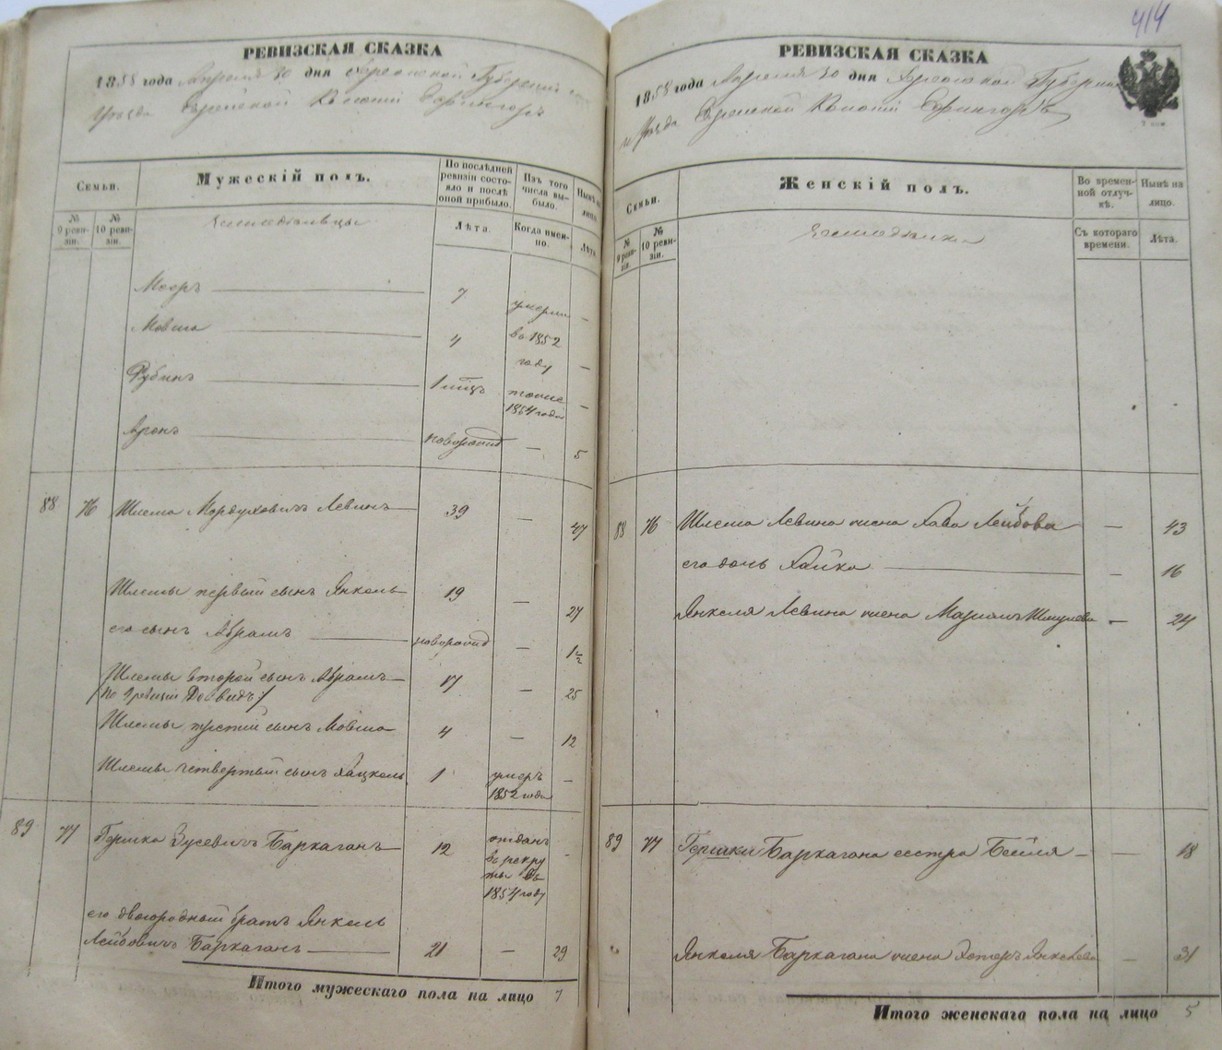 РЕВИЗСКАЯ СКАЗКА
1858 года Апреля 30 дня Херсонской Губернии
Уѣзда Еврейской Колоніи Эфингаръ
Семьи.
Мужескій полъ.
По послѣдней ревизіи состояло и послѣ оной прибыло.
Изъ того числа выбыло.
Нынѣ на лицо.
№ 9 ревизіи.
№ 10 ревизіи.
Лѣта.
Когда именно.
Лѣта.
Земледѣльцы
Мееръ 7 умерли –
Мовша 4 въ 1852 году –
Рубинъ 1 мѣц. тоже 1854 года –
Аронъ новорожд – 5
88 76 Шлема Мордуховичъ Левинъ 39 – 47
Шлемы первый сынъ Янкель 19 – 27
его сынъ Абрамъ новорожд – 1½
Шлемы второй сынъ Абрамъ 17 – 25
/по 9 ревизіи Довидъ/
Шлемы третій сынъ Мовша 4 – 12
Шлемы четвертый сынъ Хацкель 1 умеръ 1852 года –
89 77 Гершка Зусевичъ Баркаганъ 12 отданъ въ рекруты въ 1854 году –
его двоюродный братъ Янкель
Лейбовичъ Баркаганъ 21 – 29
Итого мужескаго пола на лицо 7
414
РЕВИЗСКАЯ СКАЗКА
1858 года Апреля 30 дня Херсонской Губерніи
и Уѣзда Еврейской Колоніи Эфингаръ
Семьи.
Женскій полъ.
Во временной отлучкѣ.
Нынѣ на лицо.
№ 9 ревизіи.
№ 10 ревизіи.
Съ котораго времени.
Лѣта.
Земледѣлки
88 76 Шлема Левина жена Хава Лейбова – 43
его дочь Хайка – 16
Янкеля Левина жена Маріамъ Шмулева – 24
89 77 Гершки Баркагана сестра Бейля – – 18
Янкеля Баркагана жена Эстеръ Янкелева – 31
Итого женскаго пола на лицо 5